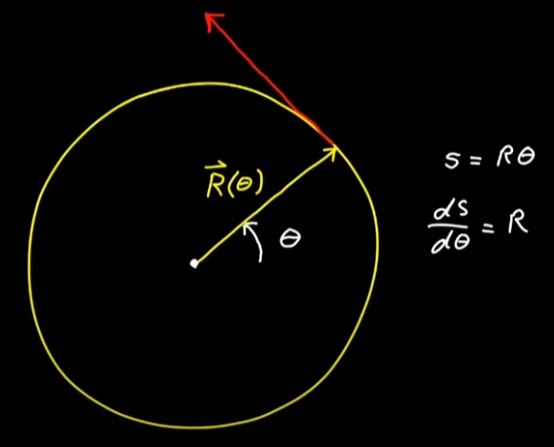 R⃗(θ)
θ
s = Rθ
ds/dθ = R